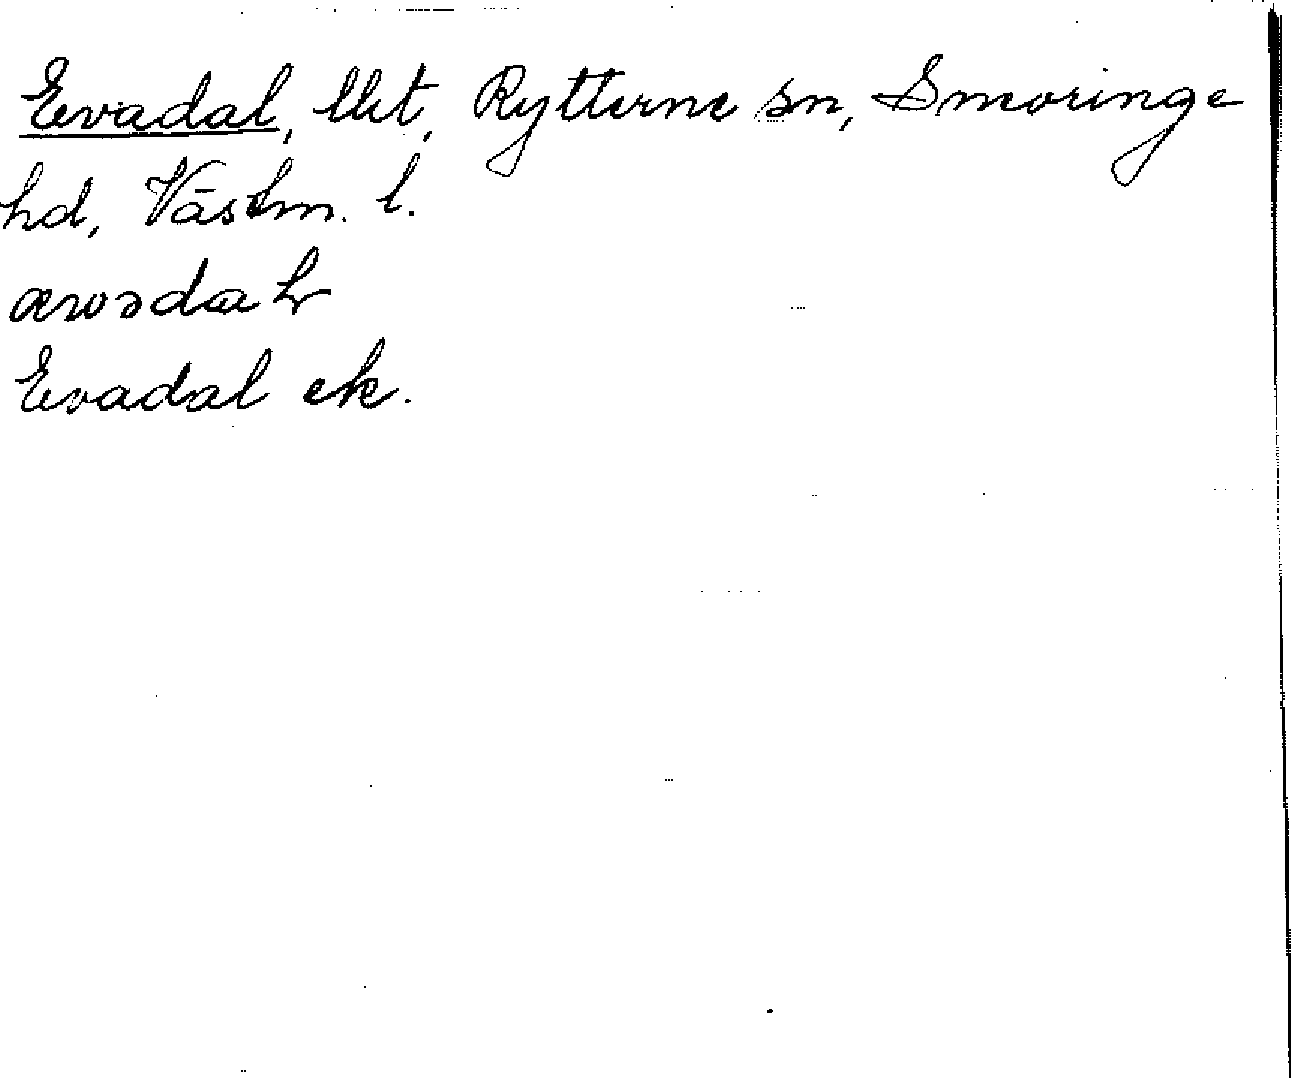 Evadal, lht, Rytterne sn, Snevringe
hd, Västm. l.
Evadal ek.